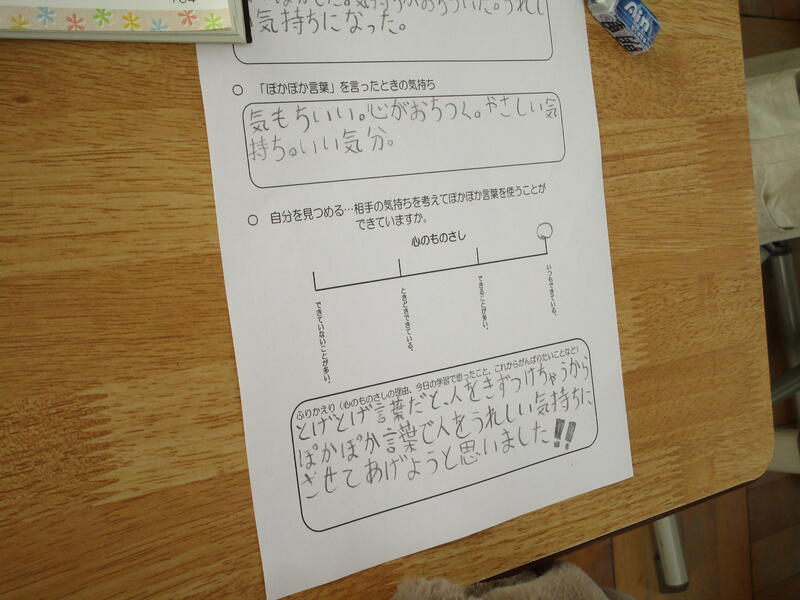 気持ちになった。
○ 「ぽかぽか言葉」を言ったときの気持ち
気もちいい。心がおちつく。やさしい気
持ち。いい気分。
○ 自分を見つめる…相手の気持ちを考えてぽかぽか言葉を使うことが
できていますか。
心のものさし
できていないことが多い。
ときどきできている。
できることが多い。
いつもできている。
ふりかえり（心のものさしの理由、今日の学習で思ったこと、これからがんばりたいことなど）
とげとげ言葉だと、人をきずつけちゃうから
ぽかぽか言葉で人をうれしい気持ちに
させてあげようと思いました!!